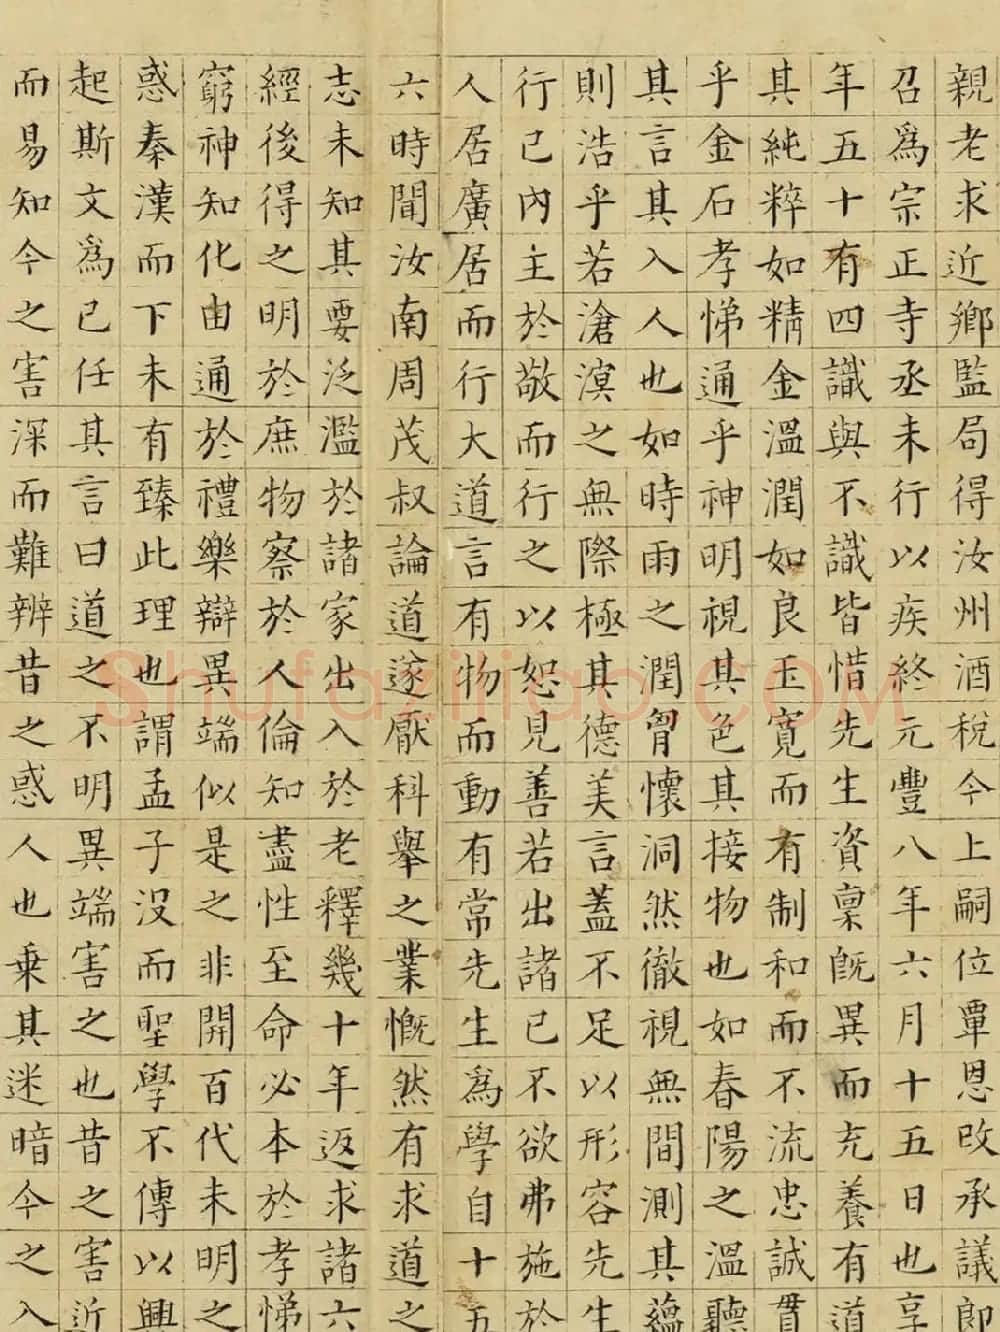 親老求近鄉監局得汝州酒稅今上嗣位覃恩改承議郎
召爲宗正寺丞未行以疾終元豐八年六月十五日也享
年五十有四識與不識皆惜先生資稟既異而充養有道
其純粹如精金溫潤如良玉寬而有制和而不流忠誠貫
乎金石孝悌通乎神明視其色其接物也如春陽之溫聽
其言其入人也如時雨之潤胷懷洞然徹視無間測其蘊
則浩乎若滄溟之無際極其德美言蓋不足以形容先生
行己內主於敬而行之以恕見善若出諸己不欲弗施於
人居廣居而行大道言有物而動有常先生爲學自十五
六時聞汝南周茂叔論道遂厭科舉之業慨然有求道之
志未知其要泛濫於諸家出入於老釋幾十年返求諸六
經後得之明於庶物察於人倫知盡性至命必本於孝悌
窮神知化由通於禮樂辯異端似是之非開百代未明之
惑秦漢而下未有臻此理也謂孟子沒而聖學不傳以興
起斯文爲己任其言曰道之不明異端害之也昔之害近
而易知今之害深而難辨昔之惑人也乗其迷暗今之入
Shufaziliao.COM